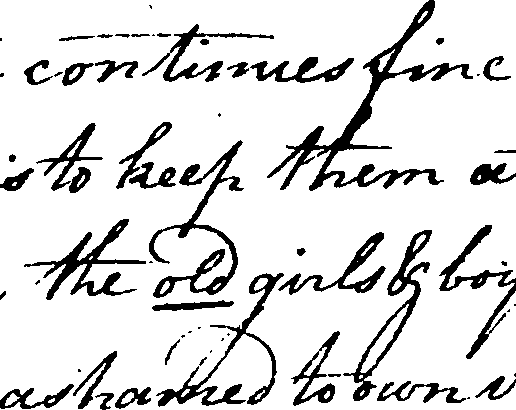 continues fine
is to keep them a
the old girls & boy
ashamed to own